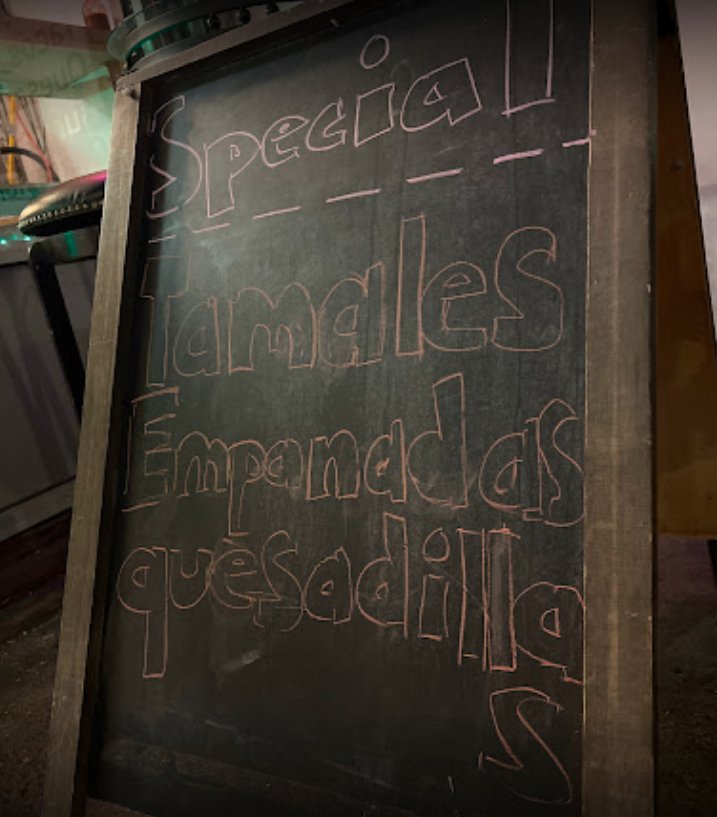 Special
Tamales
Empanadas
quèsadilla
s